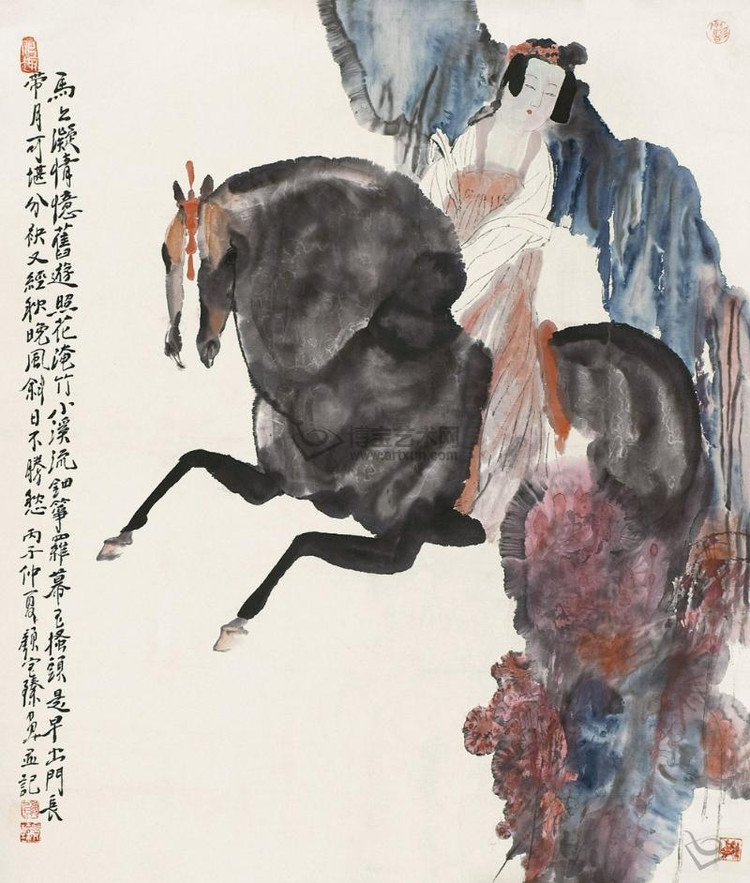 馬上凝情憶舊遊照花淹竹小溪流鈿箏羅幕玉搔頭是早出門長
帶月可堪分袂又經秋晚風斜日不勝愁 丙子仲夏顏寶臻寫並記
博宝艺术网
www.artxun.com